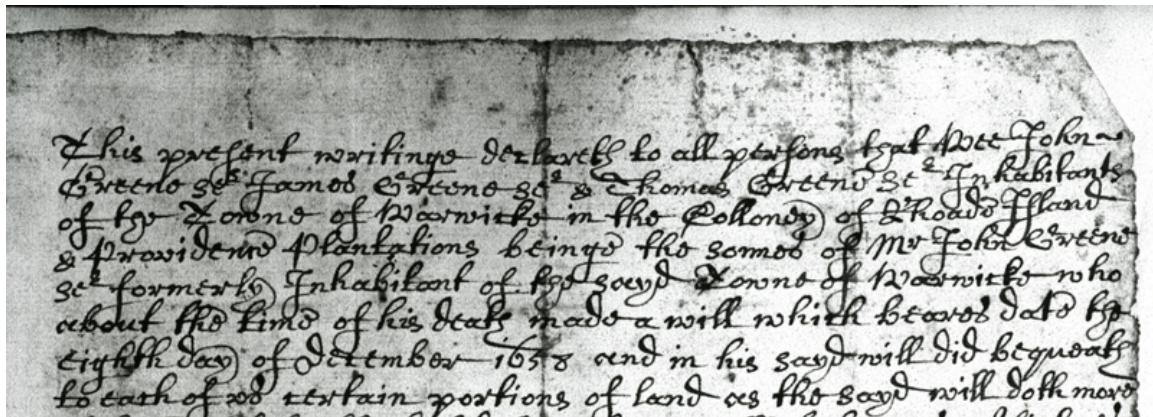 This present writinge declareth to all persons that Wee John
Greene seʳ James Greene seʳ & Thomas Greene seʳ Inhabitants
of the Towne of Warwicke in the Colloney of Rhoade Island
& Providence Plantations beinge the sonnes of Mr John Greene
seʳ formerly Inhabitant of the sayd Towne of Warwicke who
about the time of his death made a will which beares date the
eighth day of december 1658 and in his sayd will did bequeath
to each of vs certain portions of land as the sayd will doth more